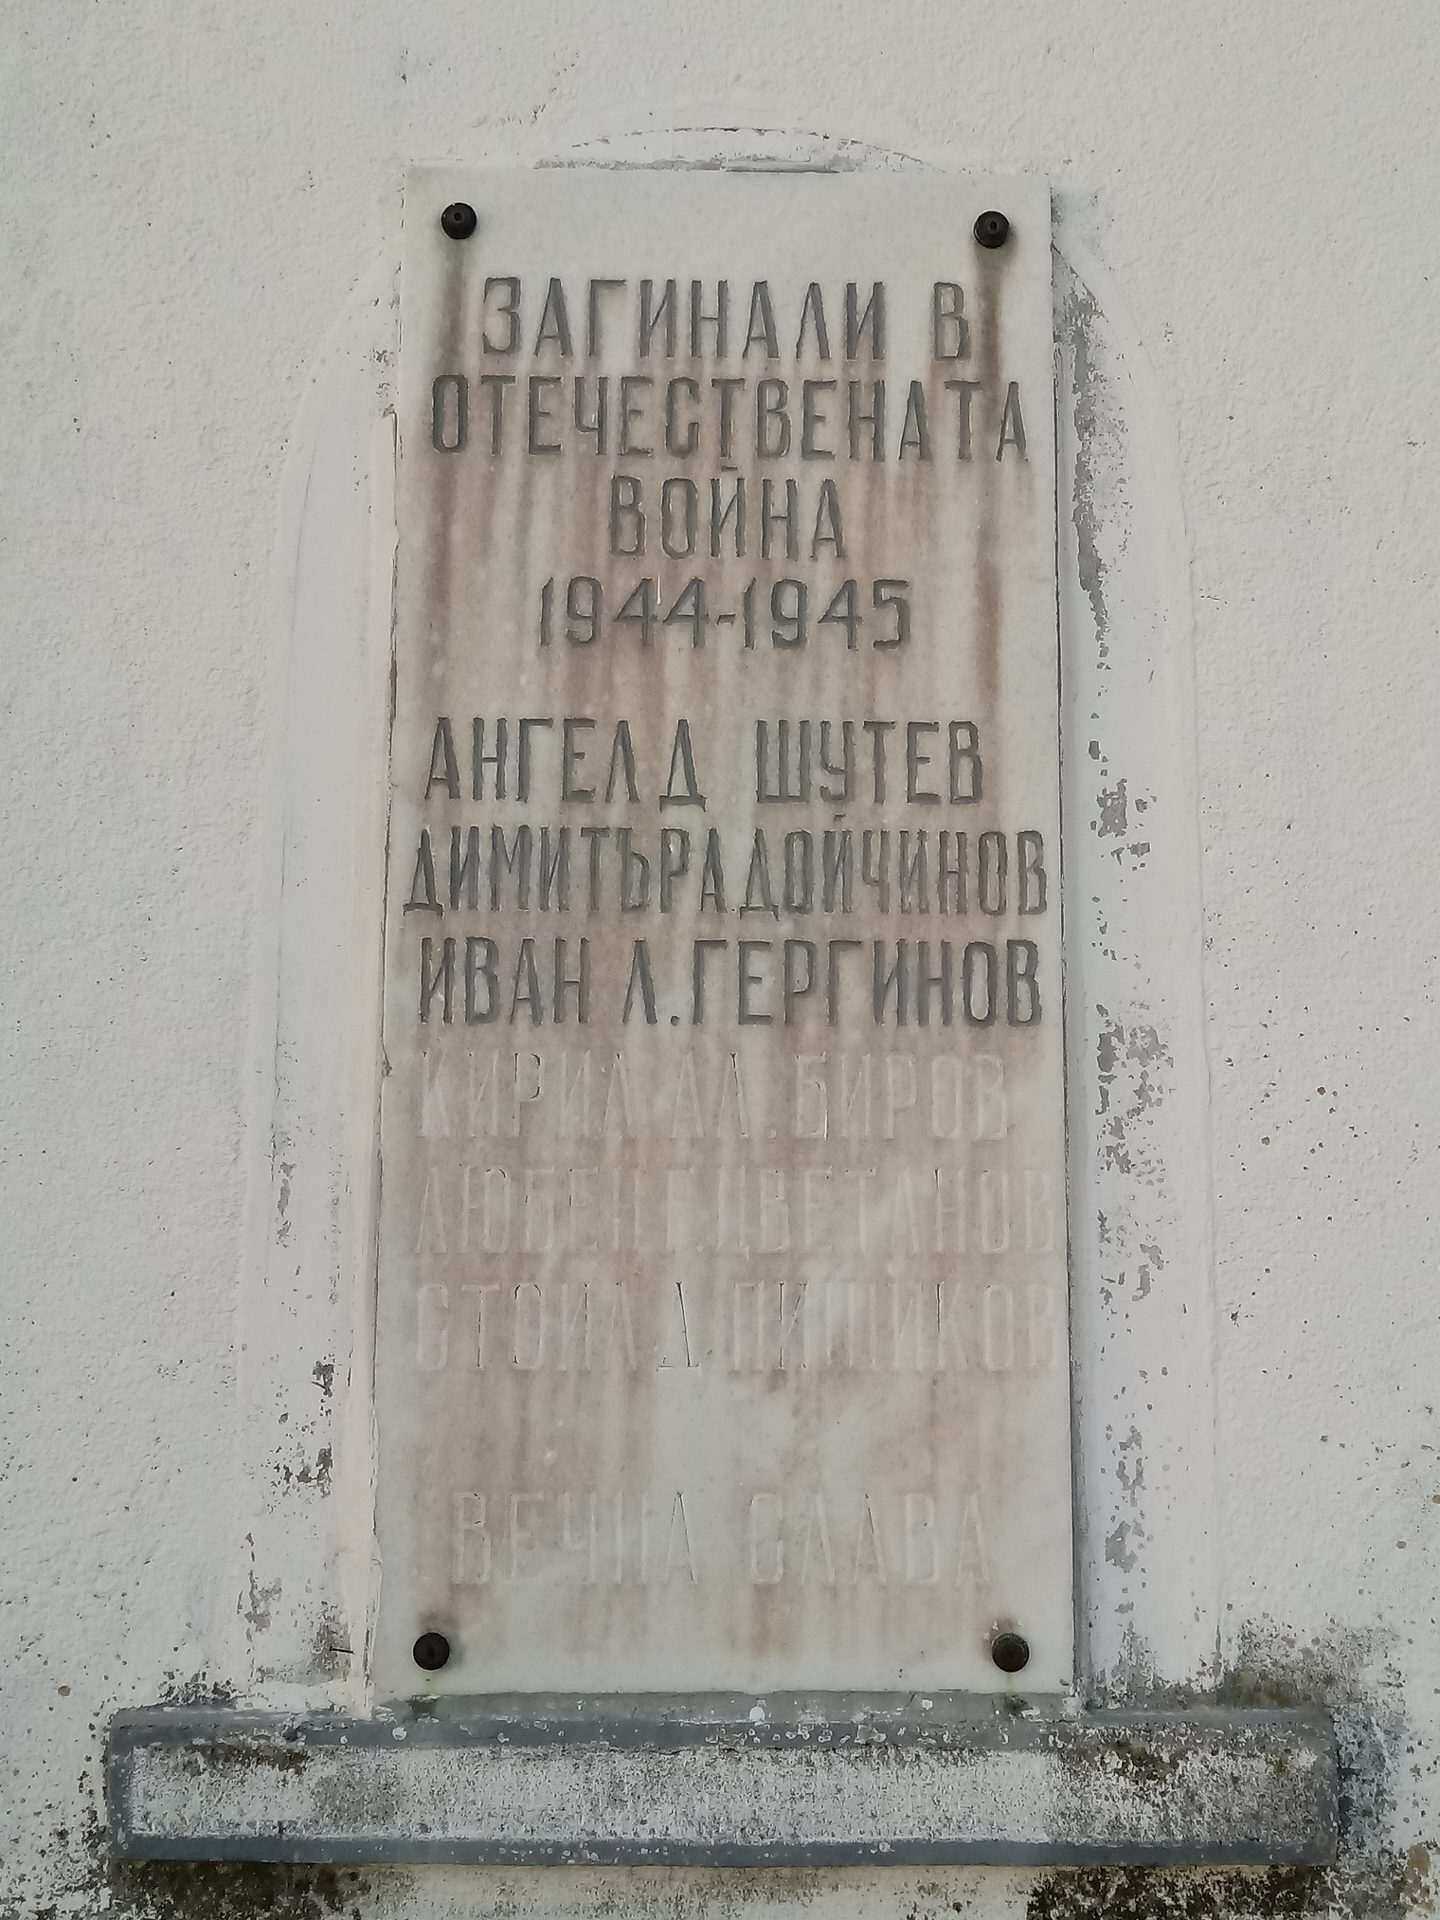 ЗАГИНАЛИ В
ОТЕЧЕСТВЕНАТА
ВОЙНА
1944-1945
АНГЕЛ Д ШУТЕВ
ДИМИТЪР А.ДОЙЧИНОВ
ИВАН Л.ГЕРГИНОВ
КИРИЛ АЛ.БИРОВ
ЛЮБЕН Г.ЦВЕТАНОВ
СТОИЛ Д
ВЕЧНА СЛАВА